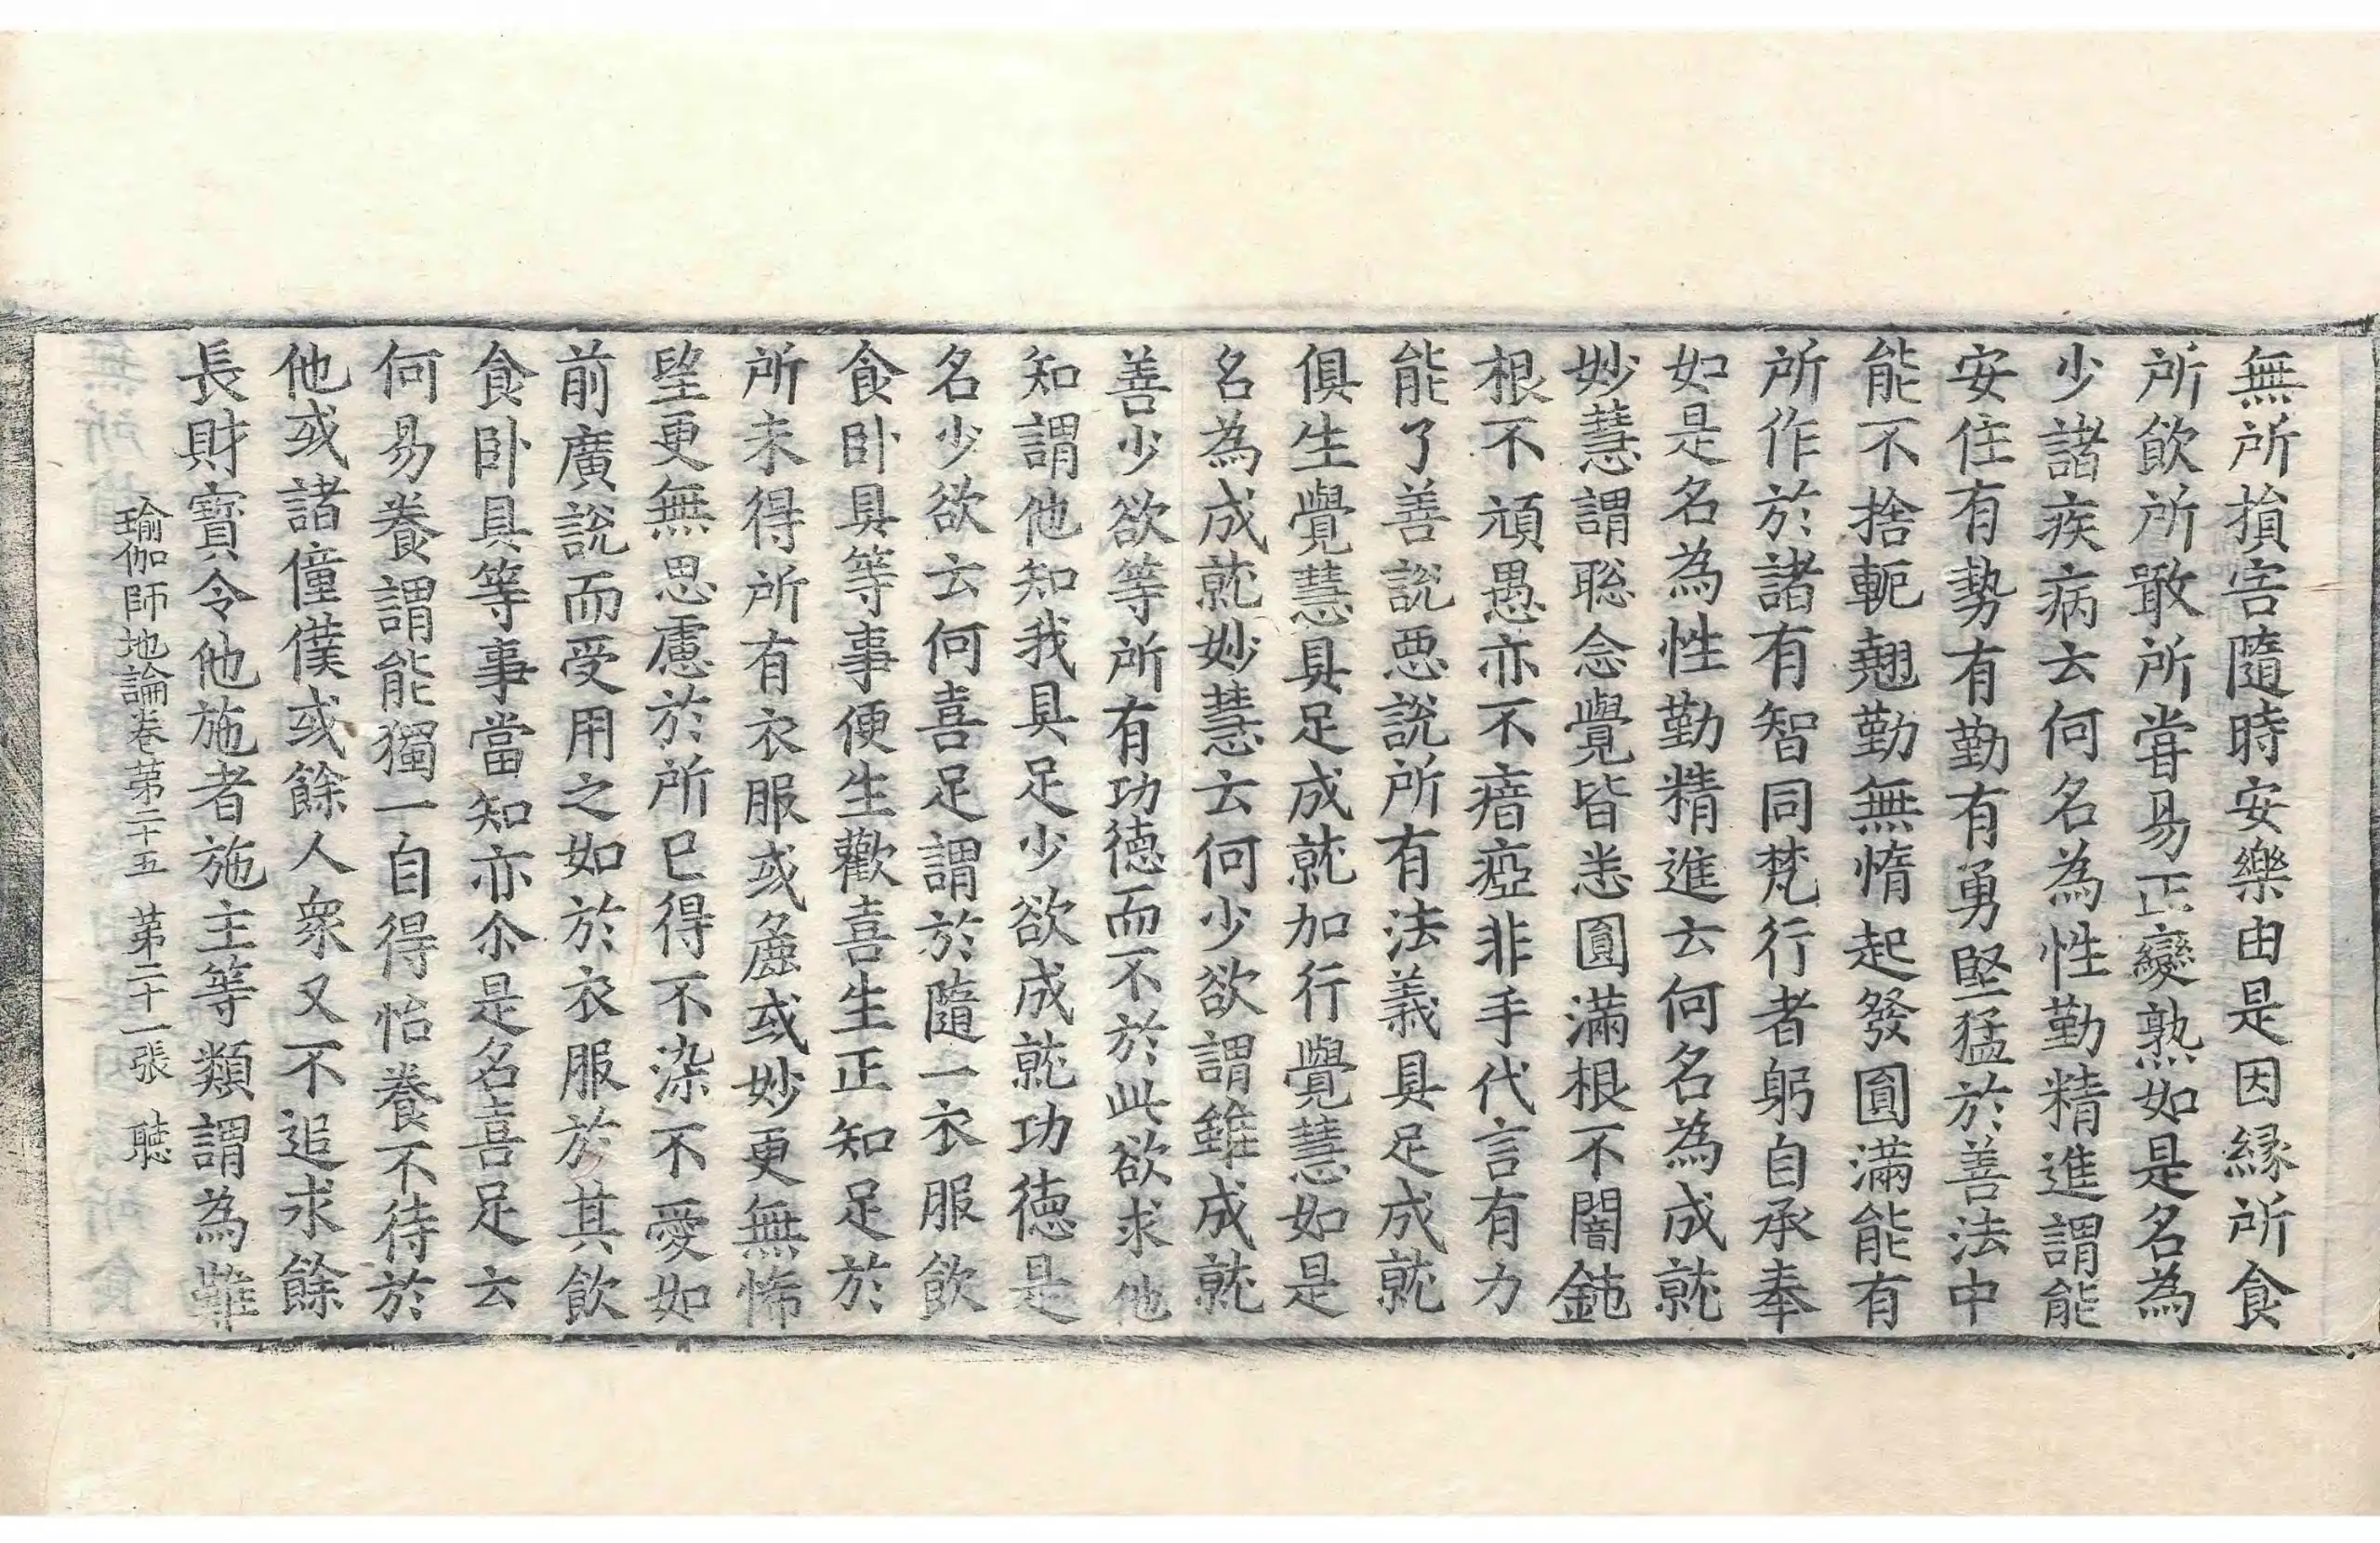 無所損害隨時安樂由是因緣所食
所飲所噉所甞易正變熟如是名為
少諸疾病云何名為性勤精進謂能
安住有勢有勤有勇堅猛於善法中
能不捨軛翹勤無惰起發圓滿能有
所作於諸有智同梵行者躬自承奉
如是名為性勤精進云何名為成就
妙慧謂聡念覺皆悉圓滿根不闇鈍
根不頑愚亦不瘖瘂非手代言有力
能了善說惡說所有法義具足成就
俱生覺慧具足成就加行覺慧如是
名為成就妙慧云何少欲謂雖成就
善少欲等所有功德而不於此欲求他
知謂他知我具足少欲成就功德是
名少欲云何喜足謂於隨一衣服飲
食卧具等事便生歡喜生正知足於
所未得所有衣服或麁或妙更無悕
望更無思慮於所已得不染不愛如
前廣說而受用之如於衣服於其飲
食卧具等事當知亦尒是名喜足云
何易養謂能獨一自得怡養不待於
他或諸僮僕或餘人衆又不追求餘
長財寶令他施者施主等類謂為難
瑜伽師地論卷苐二十五 苐二十一張 聴